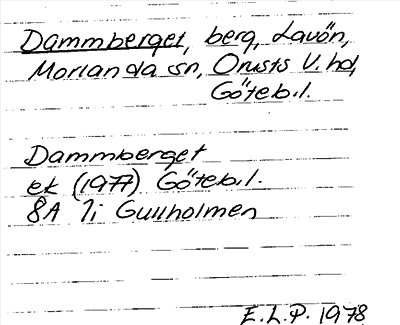 Dammberget, berg, Lavön,
Morlanda sn, Orusts V. hd,
Göteb.l.
Dammberget
ek (1977) Göteb.l.
8A 7i Gullholmen
E.L.P. 1978